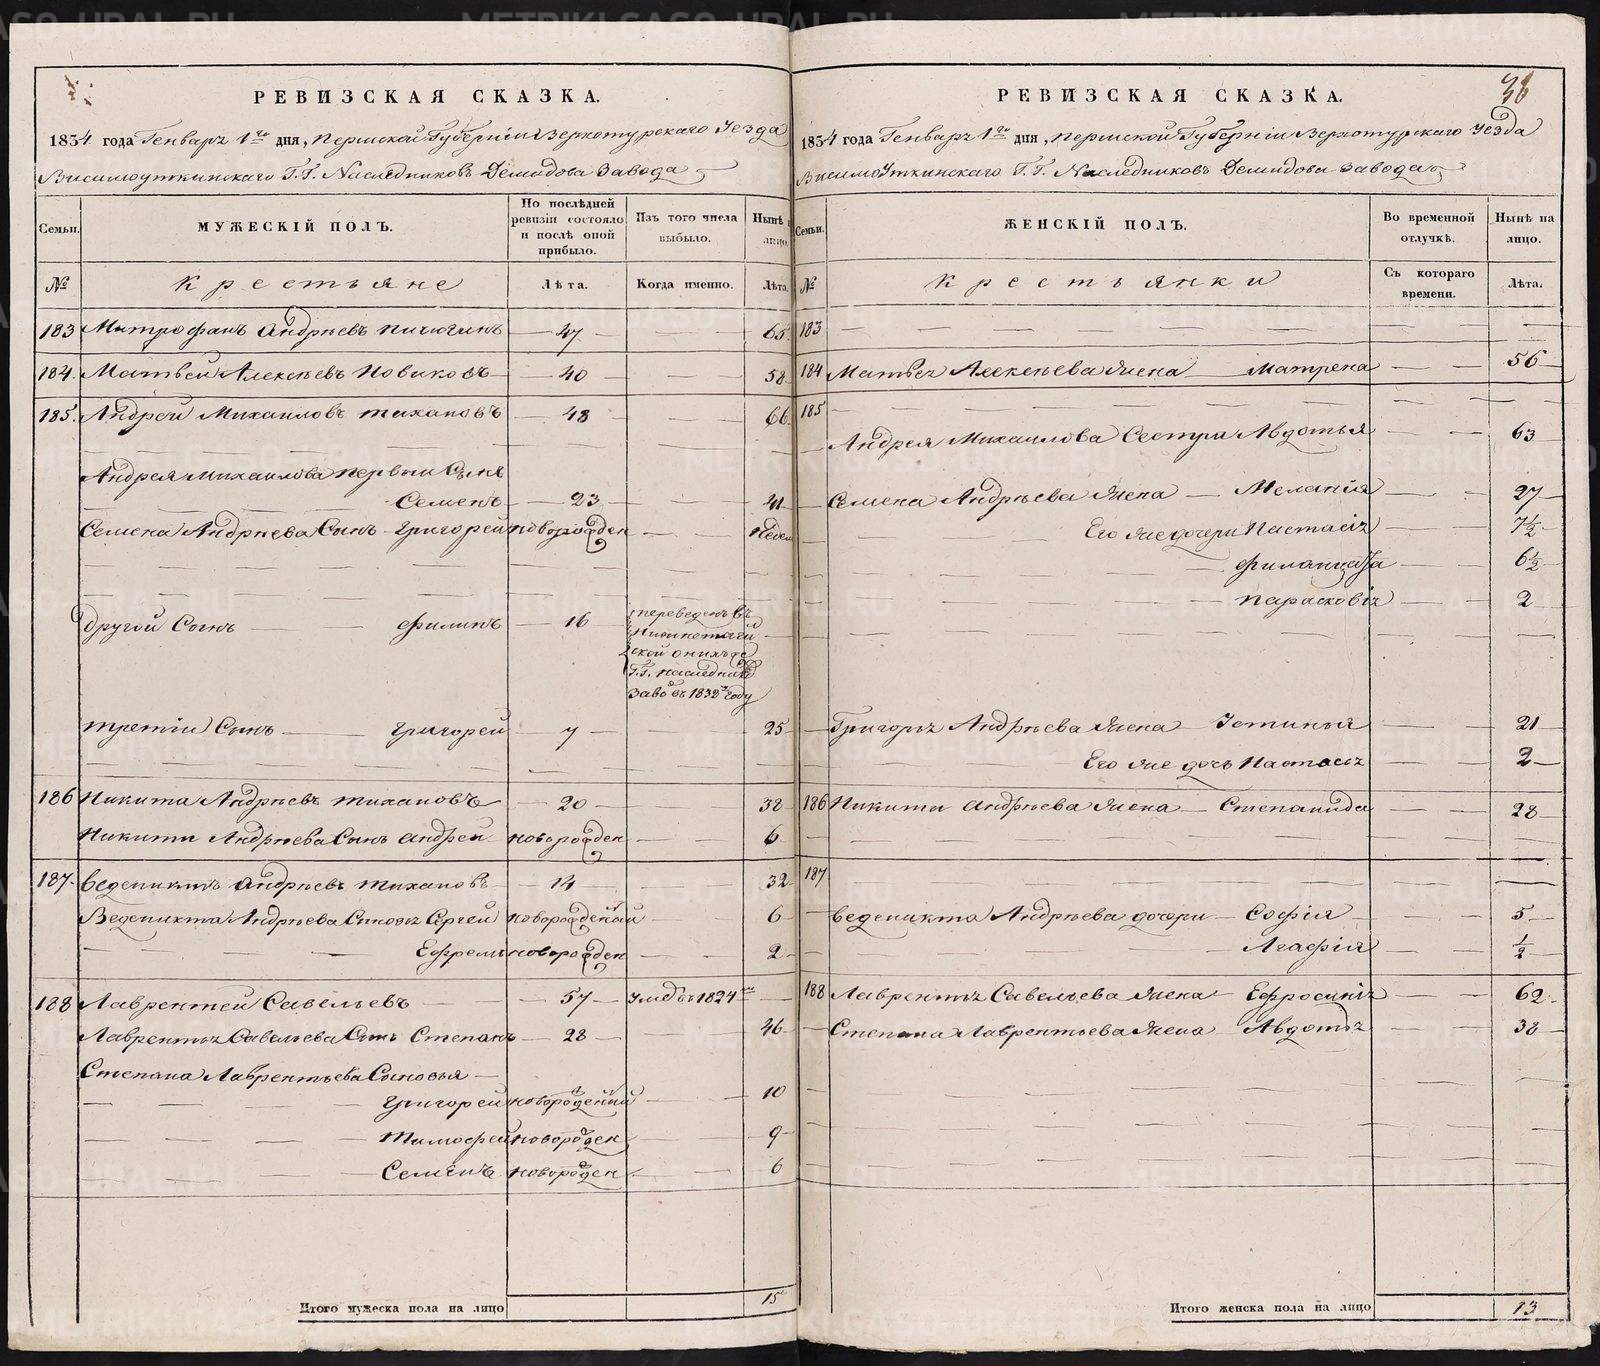 РЕВИЗСКАЯ СКАЗКА.
1834 года Генваря 1го дня, Пермской Губернiи Верхотурскаго Уезда
Висимоуткинскаго Г.Г. Наследниковъ Демидова завода
Семьи.
МУЖЕСКIЙ ПОЛЪ.
По послѣдней ревизiи состояло и послѣ оной прибыло.
Изъ того числа выбыло.
Нынѣ на лицо.
№
Крестьяне
Лѣта.
Когда именно.
Лѣта.
183 Митрофанъ Андрѣевъ Пичюгинъ 47 65
184. Матвей Алексѣевъ Новиковъ 40 58
185. Андрей Михаиловъ Тихановъ 48 66
Андрея Михаилова первыи Сынъ
Семенъ 23 41
Семена Андрѣева Сынъ Григорей новорожден Недел
другой Сынъ Филипъ 16
переведенъ въ
Нижнетагиль
ской онихъ же
Г.Г. наследник
Завод въ 1832м году
третiи Сынъ Григорей 7 25
186 Никита Андрѣевъ Тихановъ 20 38
Никиты Андрѣева Сынъ Андреи новорожден 6
187. Веденихтъ Андрѣевъ Тихановъ 14 32
Веденихта Андрѣева Сыновья Сергей новорожденый 6
Ефремъ новорожден 2
188 Лаврентей Савельевъ 57 умеръ въ 1824мъ
Лаврентья Савельева Сынъ Степанъ 28 46
Степана Лаврентьева Сыновья
Григорей новорожденый 10
Тимофей новорожден 9
Семенъ новорожден 6
Итого мужеска пола на лицо 15
36
РЕВИЗСКАЯ СКАЗКА.
1834 года Генваря 1го дня, Пермской Губернiи Верхотурскаго Уезда
Висимоуткинскаго Г.Г. Наследниковъ Демидова завода
Семьи.
ЖЕНСКIЙ ПОЛЪ.
Во временной отлучкѣ.
Нынѣ на лицо.
№
Крестьянки
Съ котораго времени.
Лѣта.
183
184 Матвея Алексѣева жена Матрена 56
185
Андрея Михаилова Сестра Авдотья 63
Семена Андрѣева жена Меланiя 27
Его же дочери Настасья 7½
6½
Парасковья 2
Григорья Андрѣева жена Устинья 21
Его же дочь Настасья 2
186 Никиты Андрѣева жена Степанида 28
187
Веденикта Андрѣева дочери Софiя 5
Агафiя ½
188 Лаврентья Савельева жена Ефросинья 62
Степана Лаврентьева жена Авдотья 38
Итого женска пола на лицо 13
METRIKI.GASO-URAL.RU